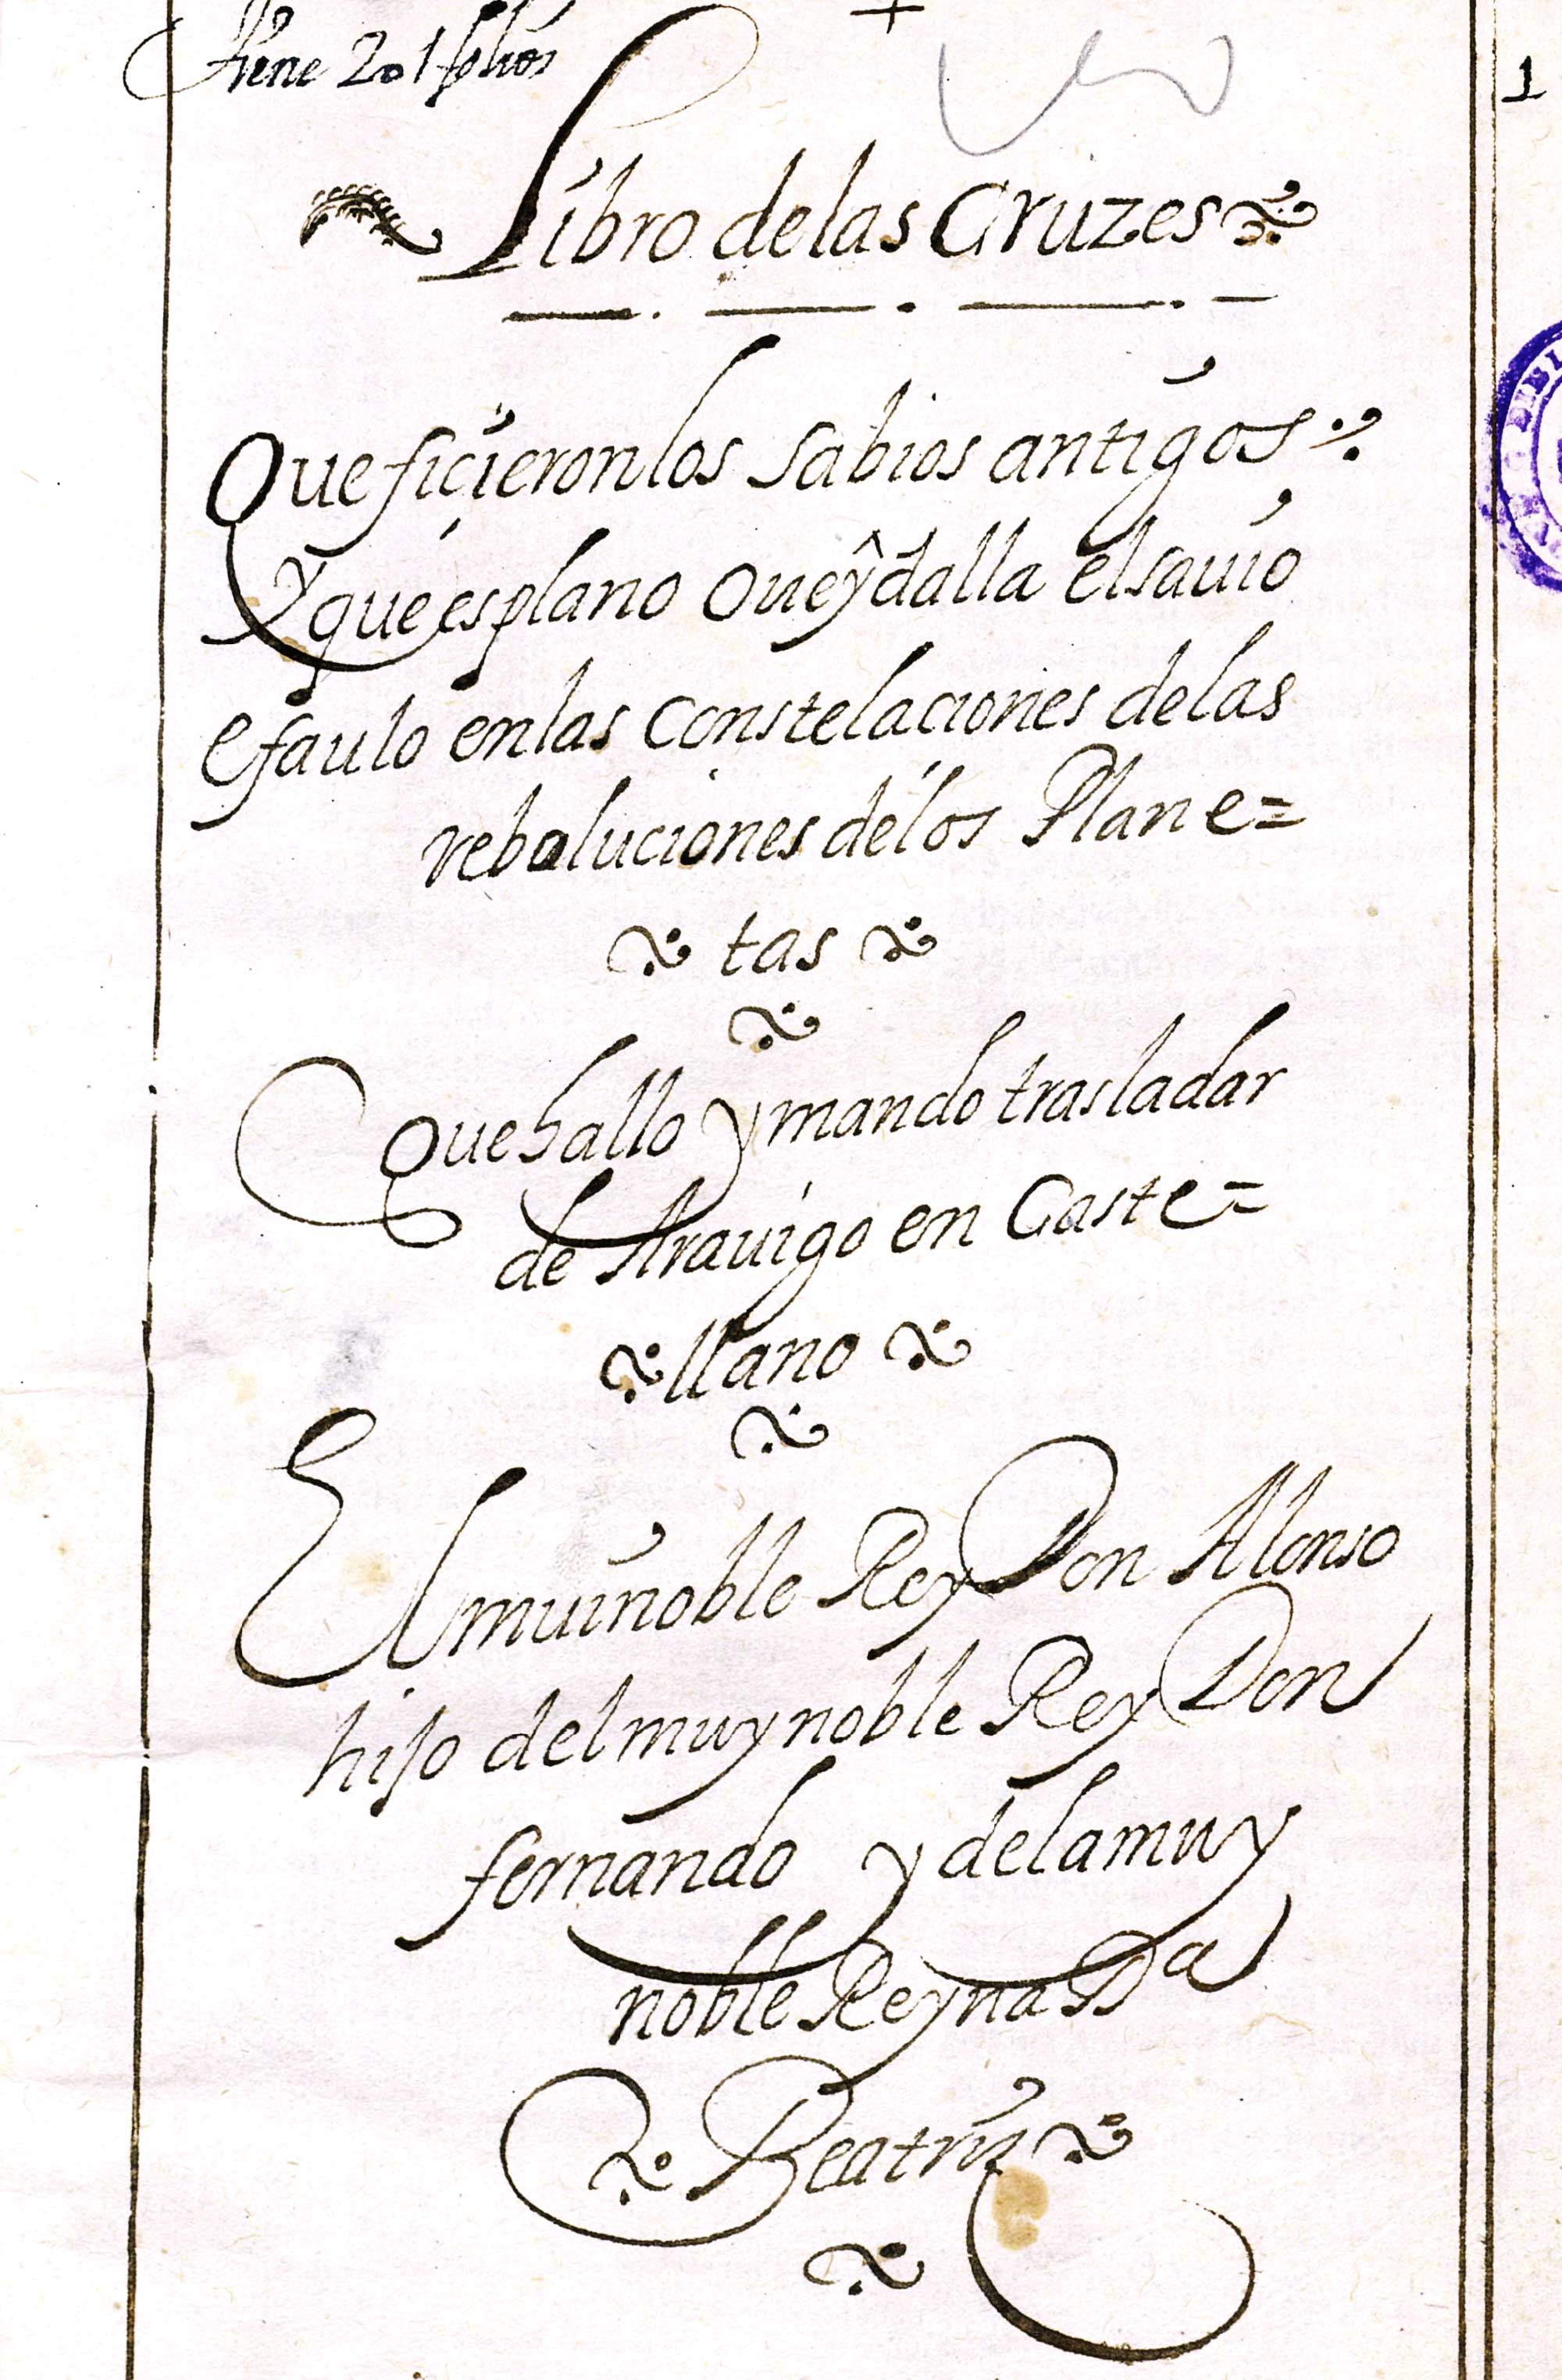 +
tiene 201 folios
1
Libro de las Cruzes
Que ficieron los sabios antigos
Y que esplano Oueydalla el sauio
e faulo en las Constelaciones de las
reboluciones de los Plane=
tas
Que hallo y mando trasladar
de Arauigo en Caste=
llano
El mui noble Rey Don Alonso
hijo del muy noble Rey Don
fernando y de la muy
noble Reyna Da
Beatriz